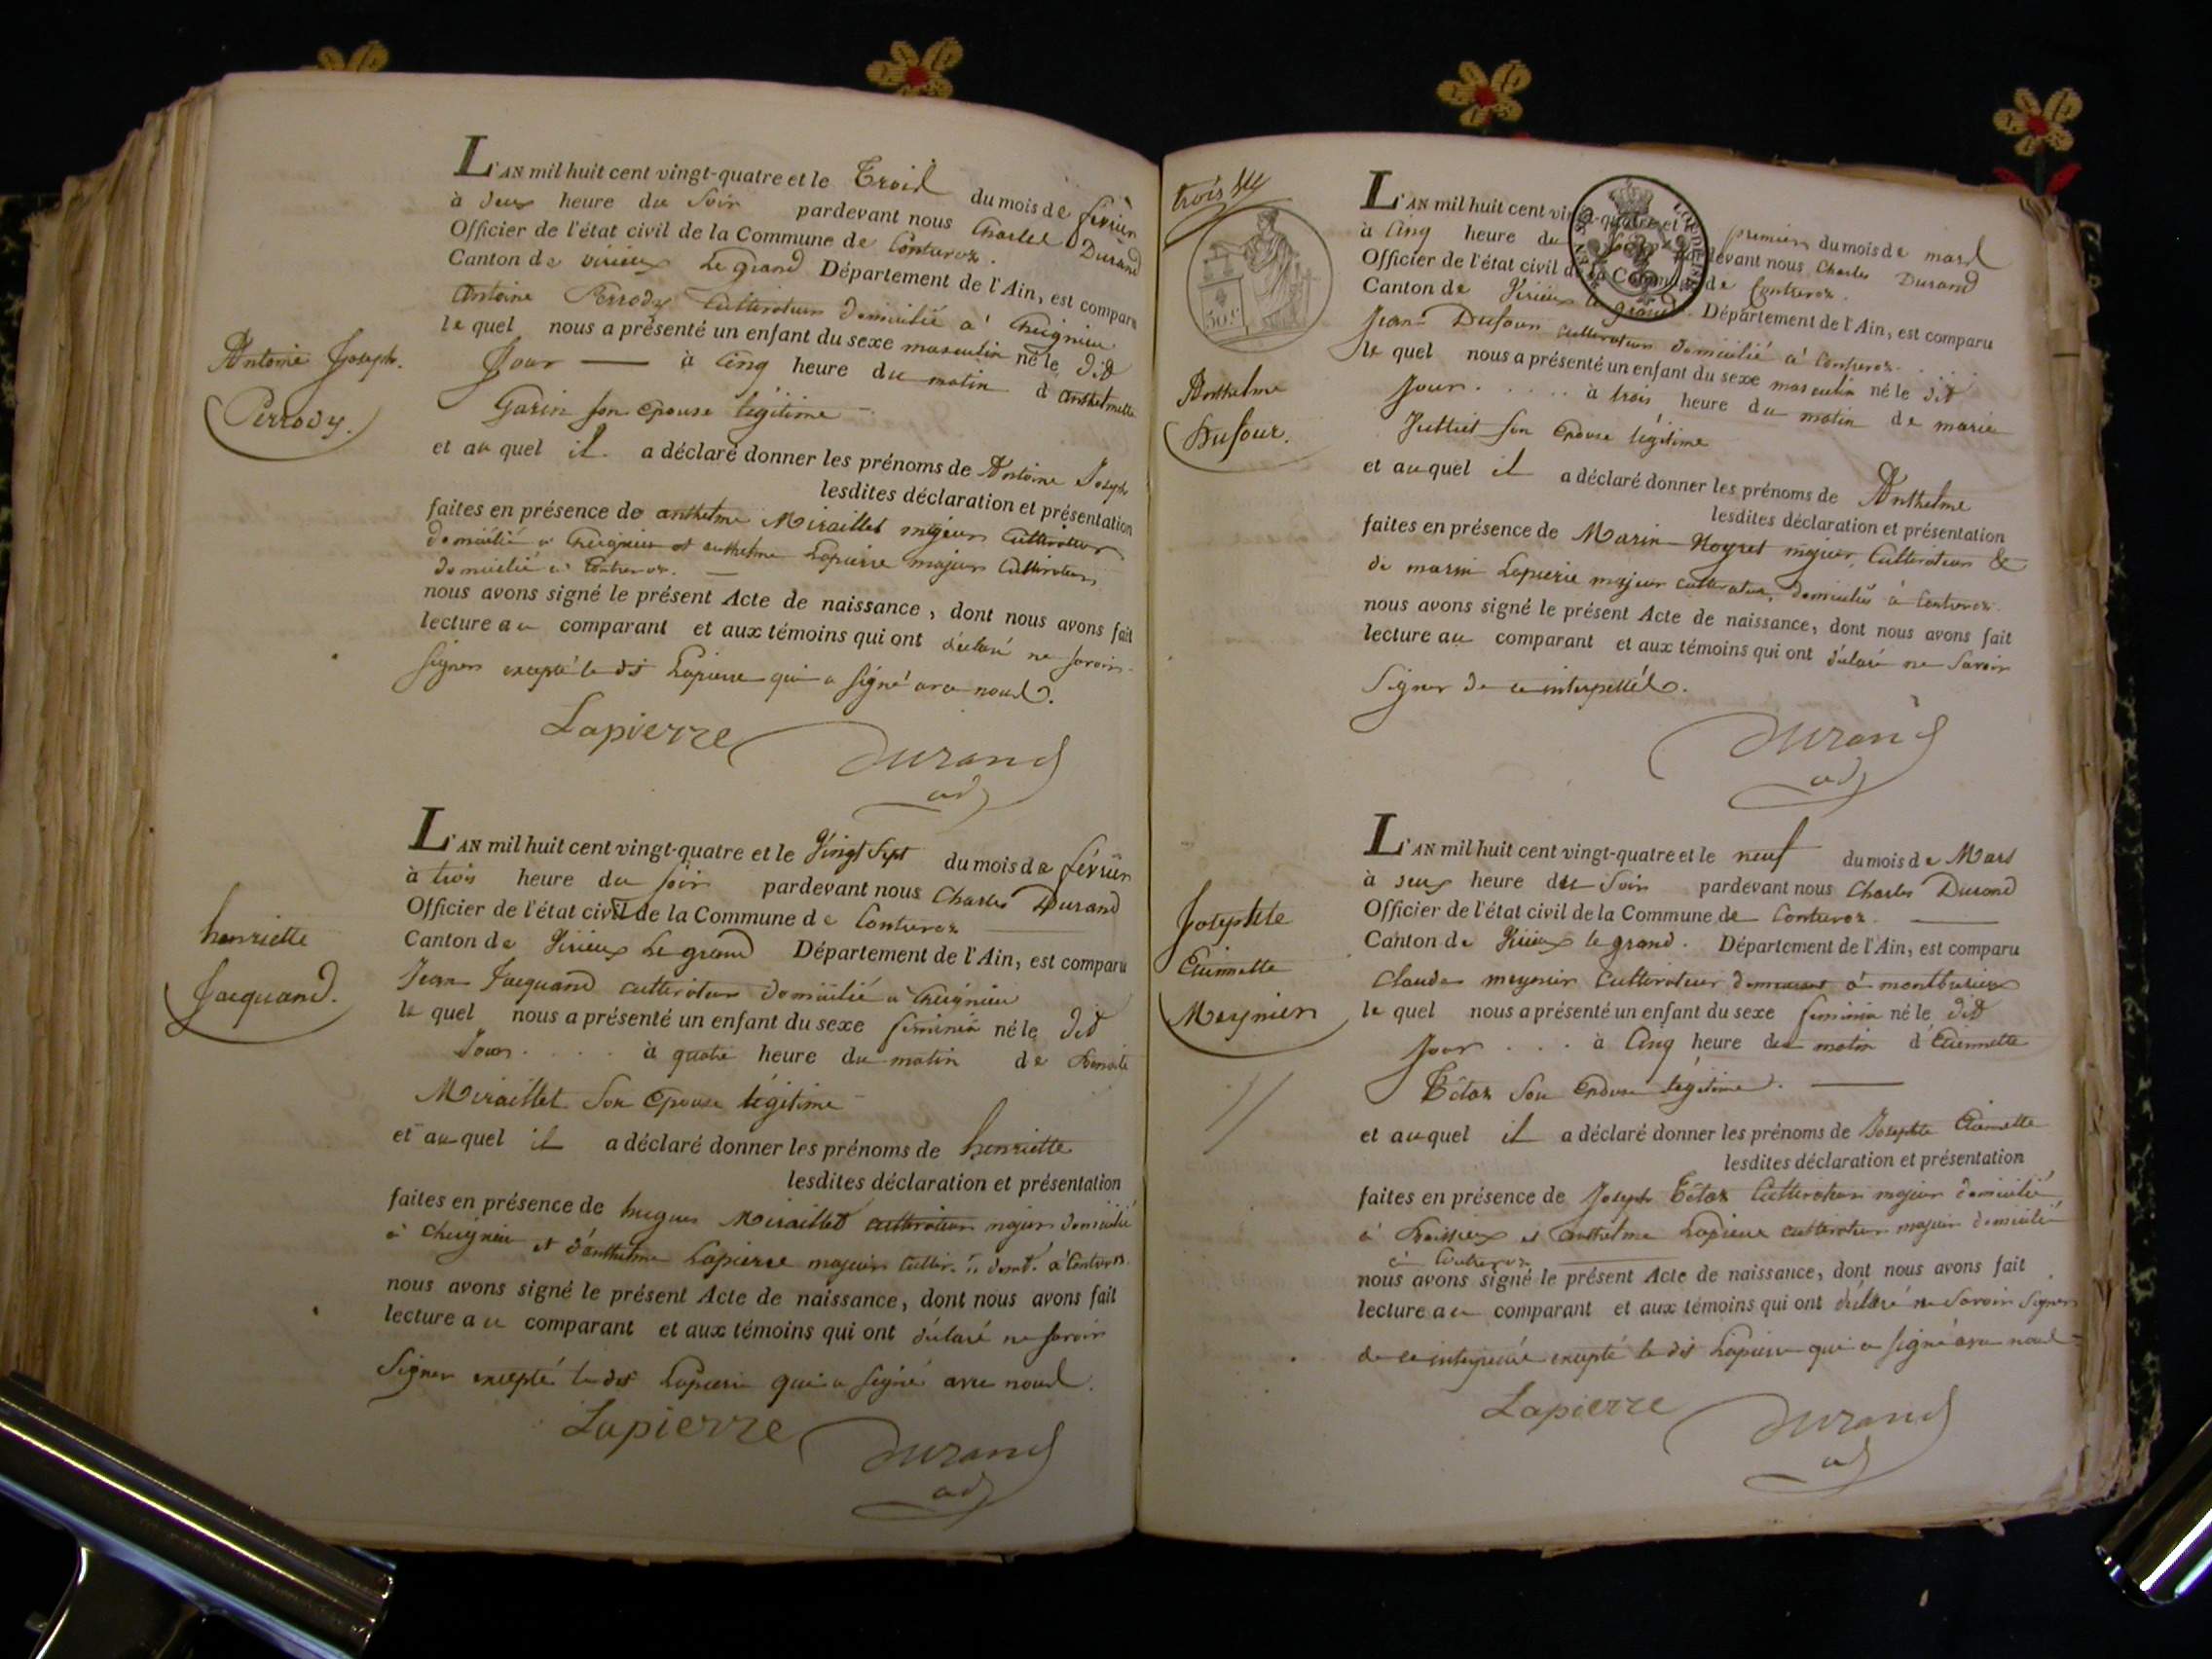 L'AN mil huit cent vingt-quatre et le Trois du mois de février
à deux heure du Soir pardevant nous Charles Durand
Officier de l'état civil de la Commune de Contrevoz.
Canton de virieux Le grand Département de l'Ain, est comparu
Antoine Perrody Cultivateur domicilié a Cheignieu
le quel nous a présenté un enfant du sexe masculin né le dit
Jour — à Cinq heure du matin d'Anthelmette
Garin son epouse légitime
et au quel il a déclaré donner les prénoms de Antoine Joseph
lesdites déclaration et présentation
faites en présence de anthelme Miraillet majeur Cultivateur
domicilié a Cheignieu et anthelme Lapierre majeur Cultivateur
domicilié a Contrevoz. —
nous avons signé le présent Acte de naissance, dont nous avons fait
lecture au comparant et aux témoins qui ont déclaré ne savoir
signer excepté le dit Lapierre qui a signé avec nous.
Lapierre Durand
adj
Antoine Joseph.
Perrody.
L'AN mil huit cent vingt-quatre et le Vingt Sept du mois de février
à trois heure du soir pardevant nous Charles Durand
Officier de l'état civil de la Commune de Contrevoz
Canton de Virieux Le grand Département de l'Ain, est comparu
Jean Jacquand cultivateur domicilié a Cheignieu
le quel nous a présenté un enfant du sexe feminin né le dit
Jour . . . . à quatre heure du matin de Benoite
Miraillet Son Epouse légitime
et au quel il a déclaré donner les prénoms de henriette
lesdites déclaration et présentation
faites en présence de hugues Miraillet cultivateur majeur domicilié
a Cheignieu et d'anthelme Lapierre majeur Cultiv. domé. a Contrevoz
nous avons signé le présent Acte de naissance, dont nous avons fait
lecture au comparant et aux témoins qui ont déclaré ne savoir
Signer excepté le dit Lapierre qui a signé avec nous.
Lapierre Durand
adj
henriette
Jacquand.
trois
50 c
L'AN mil huit cent vingt-quatre et le premier du mois de mars
à Cinq heure du Soir pardevant nous Charles Durand
Officier de l'état civil de la Commune de Contrevoz.
Canton de Virieux le grand. Département de l'Ain, est comparu
Jean Dufour cultivateur domicilié a Contrevoz. . . .
le quel nous a présenté un enfant du sexe masculin né le dit
Jour . . . . . à trois heure du matin de marie
Juilliet son Epouse légitime
et au quel il a déclaré donner les prénoms de Anthelme
lesdites déclaration et présentation
faites en présence de Marin Noyret majeur, Cultivateur &
de marin Lapierre majeur cultivateur, domiciliés a Contrevoz
nous avons signé le présent Acte de naissance, dont nous avons fait
lecture au comparant et aux témoins qui ont déclaré ne Savoir
Signer de ce interpellés.
Durand
adj
Anthelme
Dufour.
L'AN mil huit cent vingt-quatre et le neuf du mois de Mars
à deux heure du Soir pardevant nous Charles Durand
Officier de l'état civil de la Commune de Contrevoz. —
Canton de Virieux le grand. Département de l'Ain, est comparu
Claude meynier Cultivateur demeurant à montbrézieux
le quel nous a présenté un enfant du sexe feminin né le dit
Jour . . . à Cinq heure du matin d'Etiennette
Tétaz Son Epouse légitime. —
et au quel il a déclaré donner les prénoms de Josephte Etiennette
lesdites déclaration et présentation
faites en présence de Joseph Tétaz Cultivateur majeur domicilié
à et Anthelme Lapierre cultivateur majeur domicilié
à Contrevoz —
nous avons signé le présent Acte de naissance, dont nous avons fait
lecture au comparant et aux témoins qui ont déclaré ne Savoir Signer
de ce interpellé excepté le dit Lapierre qui a signé avec nous
Lapierre Durand
adj
Josephte
Etiennette
Meynier